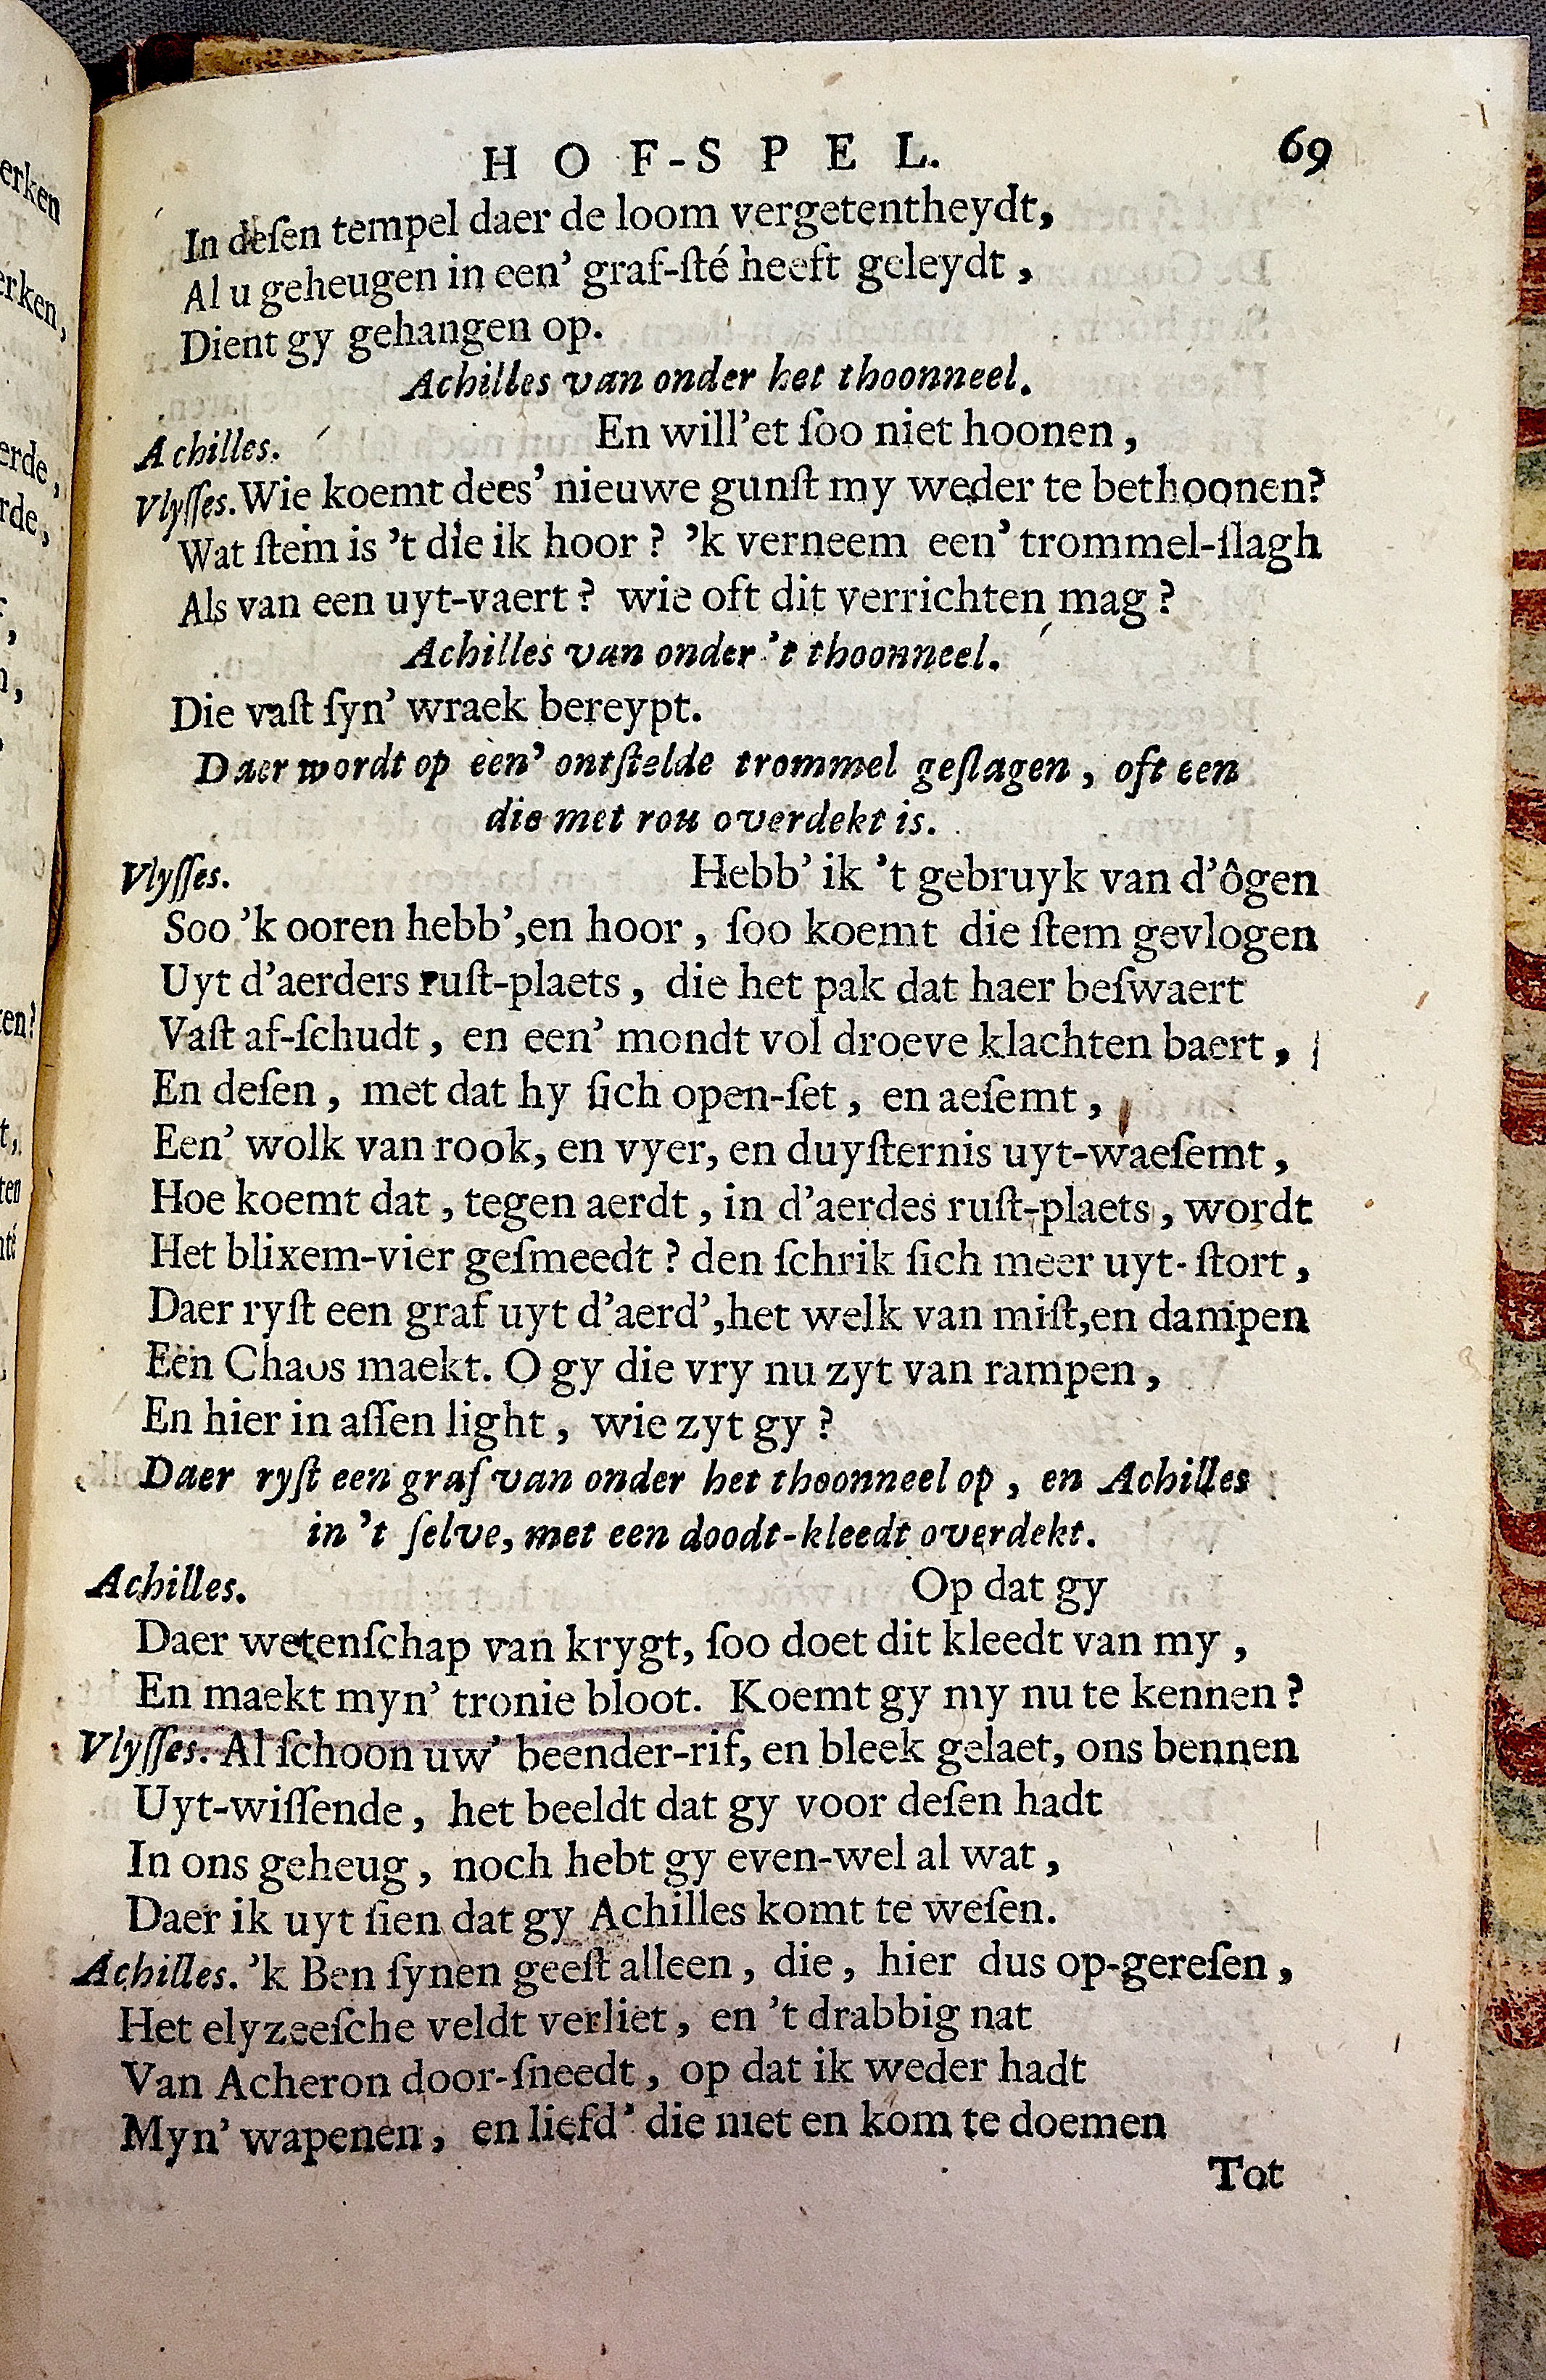 HOF-SPEL. 69
In deſen tempel daer de loom vergetentheydt,
Al u geheugen in een' graf-ſté heeft geleydt,
Dient gy gehangen op.
Achilles van onder het thoonneel.
Achilles. En will'et ſoo niet hoonen,
Vlyſſes. Wie koemt dees' nieuwe gunſt my weder te bethoonen?
Wat ſtem is 't die ik hoor? 'k verneem een' trommel-ſlagh
Als van een uyt-vaert? wie oft dit verrichten mag?
Achilles van onder 't thoonneel.
Die vaſt ſyn' wraek bereypt.
Daer wordt op een' ontſtelde trommel geſlagen, oft een
die met rou overdekt is.
Vlyſſes. Hebb' ik 't gebruyk van d'ôgen
Soo 'k ooren hebb', en hoor, ſoo koemt die ſtem gevlogen
Uyt d'aerders ruſt-plaets, die het pak dat haer beſwaert
Vaſt af-ſchudt, en een' mondt vol droeve klachten baert,
En deſen, met dat hy ſich open-ſet, en aeſemt,
Een' wolk van rook, en vyer, en duyſternis uyt-waeſemt,
Hoe koemt dat, tegen aerdt, in d'aerdes ruſt-plaets, wordt
Het blixem-vier geſmeedt? den ſchrik ſich meer uyt-ſtort,
Daer ryſt een graf uyt d'aerd', het welk van miſt, en dampen
Een Chaos maekt. O gy die vry nu zyt van rampen,
En hier in aſſen light, wie zyt gy?
Daer ryſt een graf van onder het thoonneel op, en Achilles
in 't ſelve, met een doodt-kleedt overdekt.
Achilles. Op dat gy
Daer wetenſchap van krygt, ſoo doet dit kleedt van my,
En maekt myn' tronie bloot. Koemt gy my nu te kennen?
Vlyſſes. Al ſchoon uw' beender-rif, en bleek gelaet, ons bennen
Uyt-wiſſende, het beeldt dat gy voor deſen hadt
In ons geheug, noch hebt gy even-wel al wat,
Daer ik uyt ſien dat gy Achilles komt te weſen.
Achilles. 'k Ben ſynen geeſt alleen, die, hier dus op-gereſen,
Het elyzeeſche veldt verliet, en 't drabbig nat
Van Acheron door-ſneedt, op dat ik weder hadt
Myn' wapenen, en liefd' die niet en kom te doemen
Tot